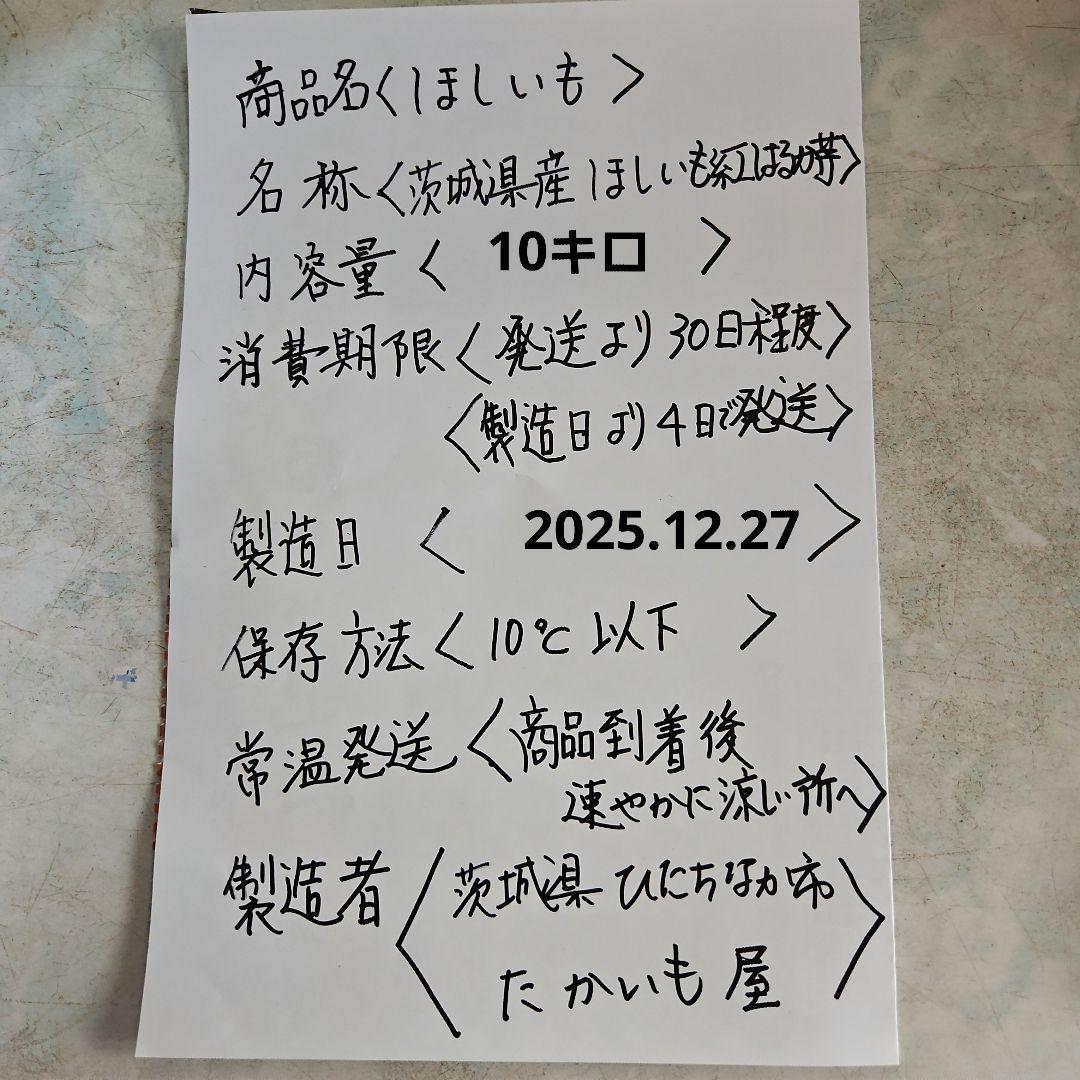 商品名〈ほしいも〉
名称〈茨城県産ほしいも紅はるか芋〉
内容量〈 10キロ 〉
消費期限〈発送より30日程度〉
〈製造日より4日で発送〉
製造日〈 2025.12.27〉
保存方法〈10℃以下〉
常温発送〈商品到着後
速やかに涼しい所へ〉
製造者〈茨城県ひたちなか市
たかいも屋〉